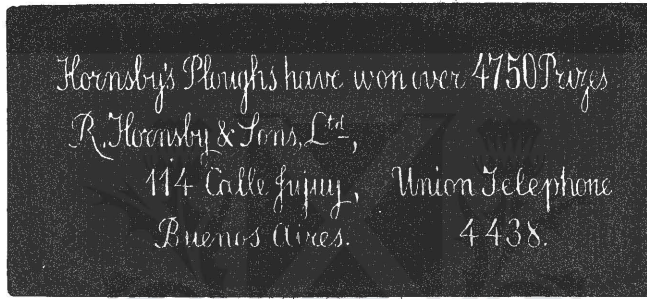 Hornsby's Ploughs have won over 4750 Prizes
R. Hornsby & Sons, Ltd,
114 Calle Jujuy, Union Telephone
Buenos Aires. 4438.